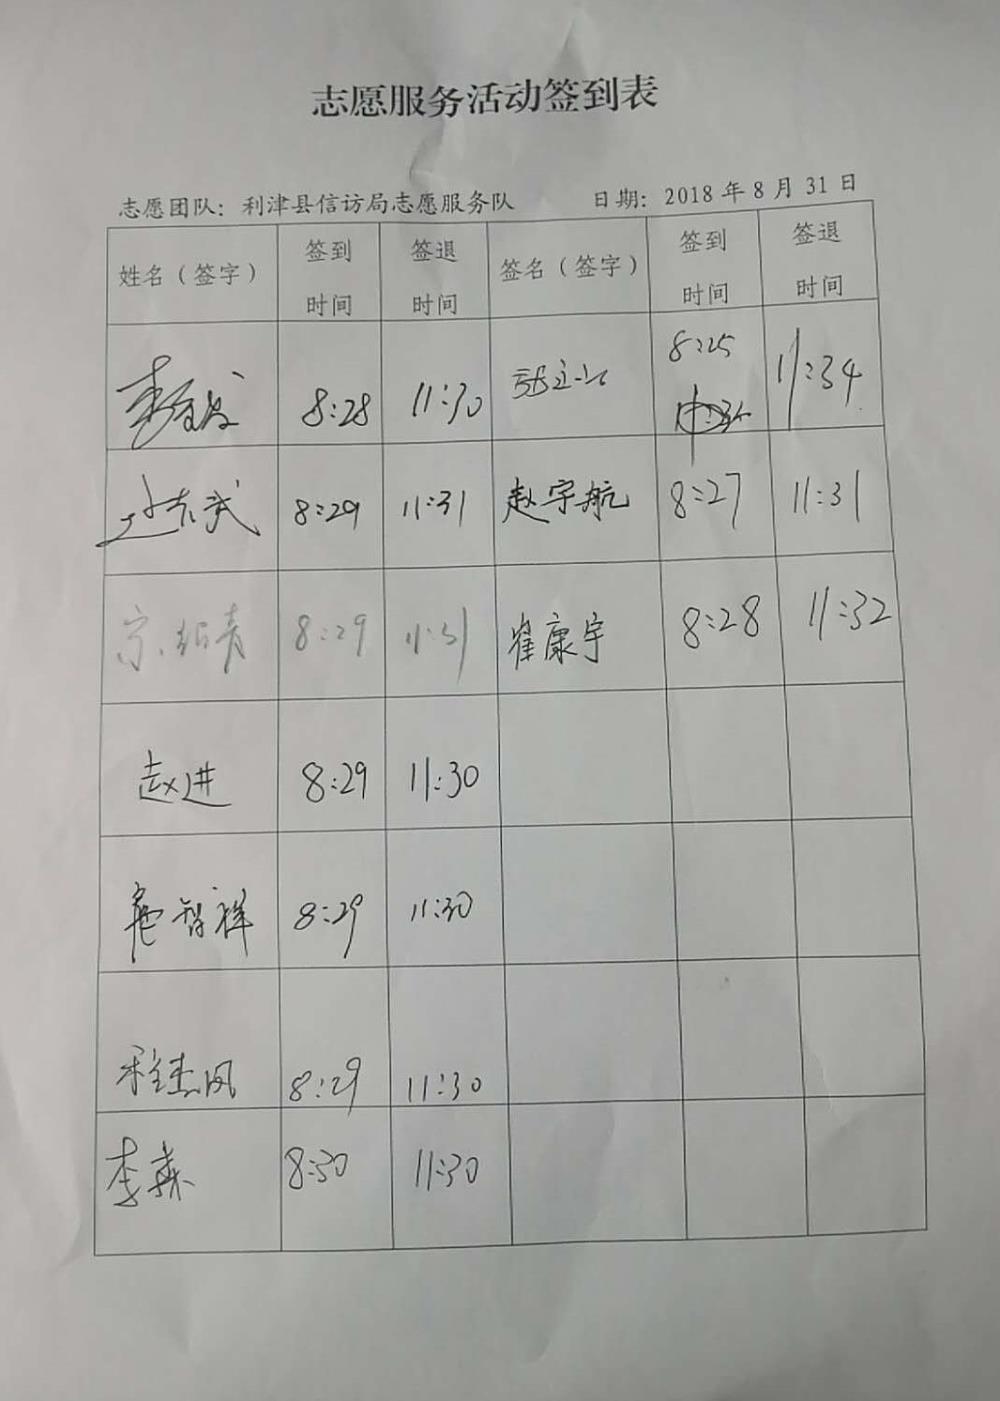 志愿服务活动签到表
志愿团队：利津县信访局志愿服务队 日期：2018年8月31日
姓名（签字） 签到时间 签退时间 签名（签字） 签到时间 签退时间
8:28 11:30 8:25 11:34
8:29 11:31 赵宇航 8:27 11:31
8:29 11:31 崔康宇 8:28 11:32
赵进 8:29 11:30
智祥 8:29 11:30
8:29 11:30
李森 8:30 11:30